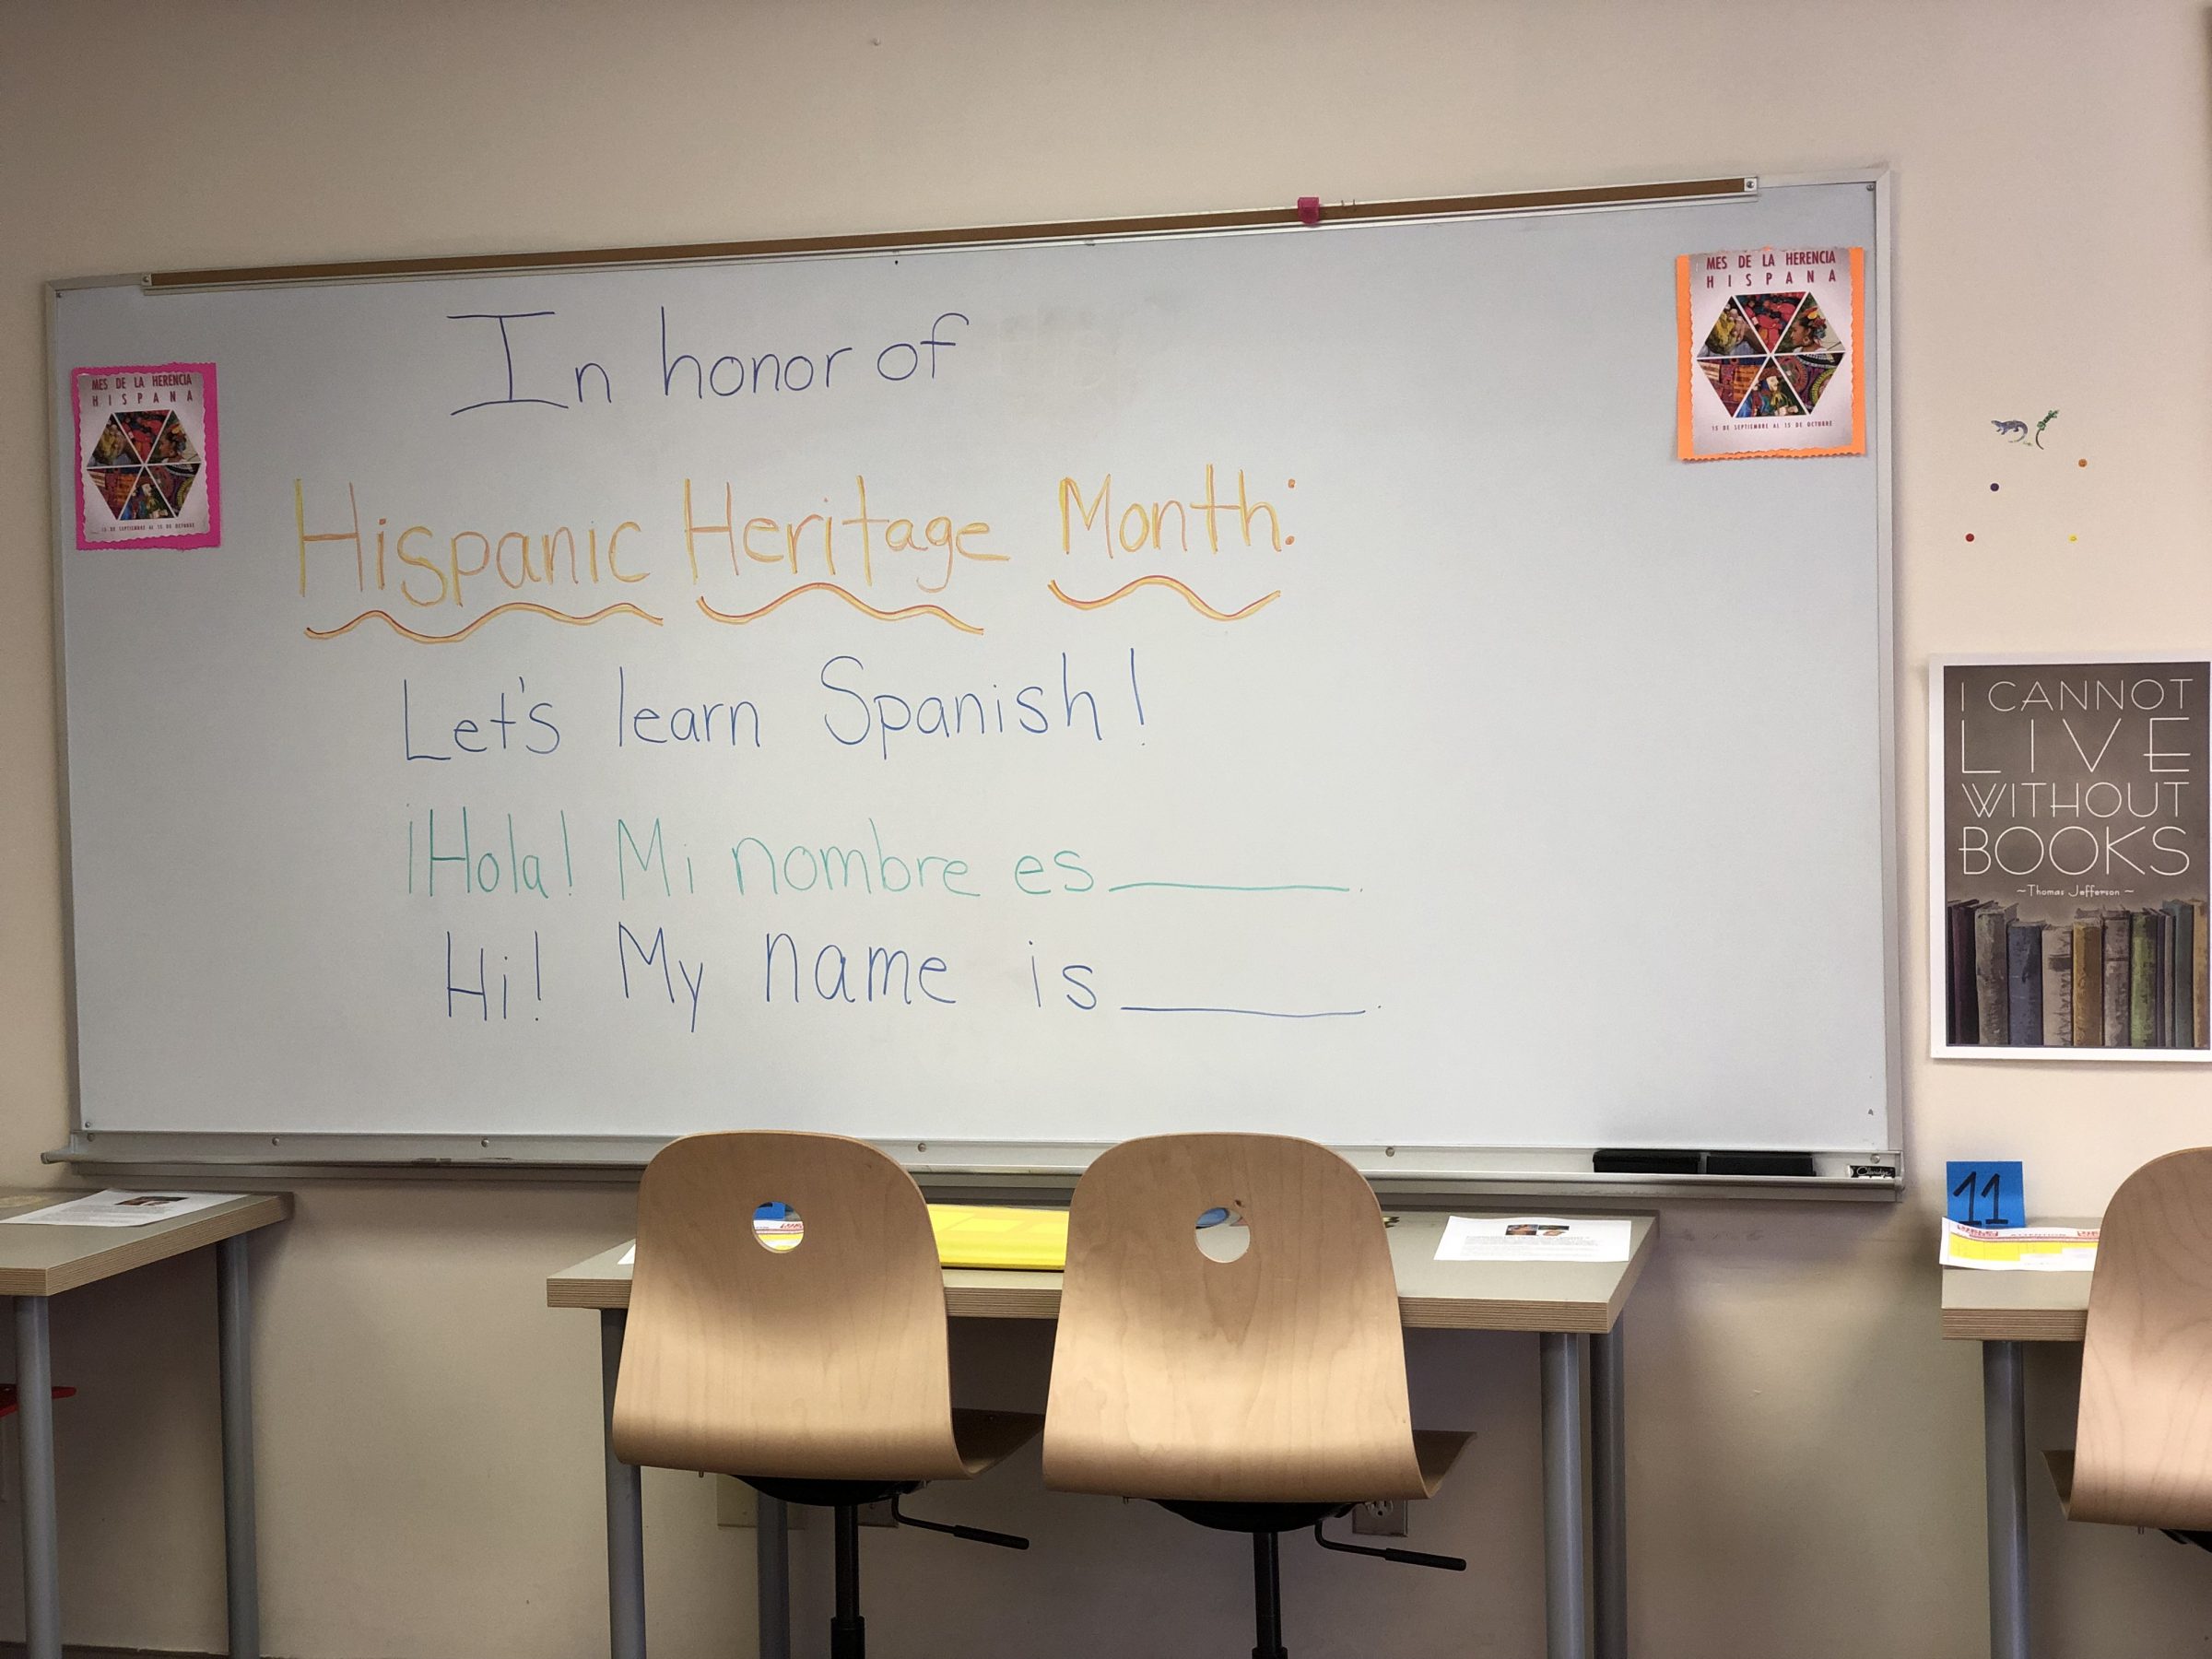 In honor of
Hispanic Heritage Month:
Let's learn Spanish!
¡Hola! Mi nombre es ______.
Hi! My name is ______.
MES DE LA HERENCIA
HISPANA
15 DE SEPTIEMBRE AL 15 DE OCTUBRE
MES DE LA HERENCIA
HISPANA
15 DE SEPTIEMBRE AL 15 DE OCTUBRE
I CANNOT
LIVE
WITHOUT
BOOKS
~Thomas Jefferson~
11